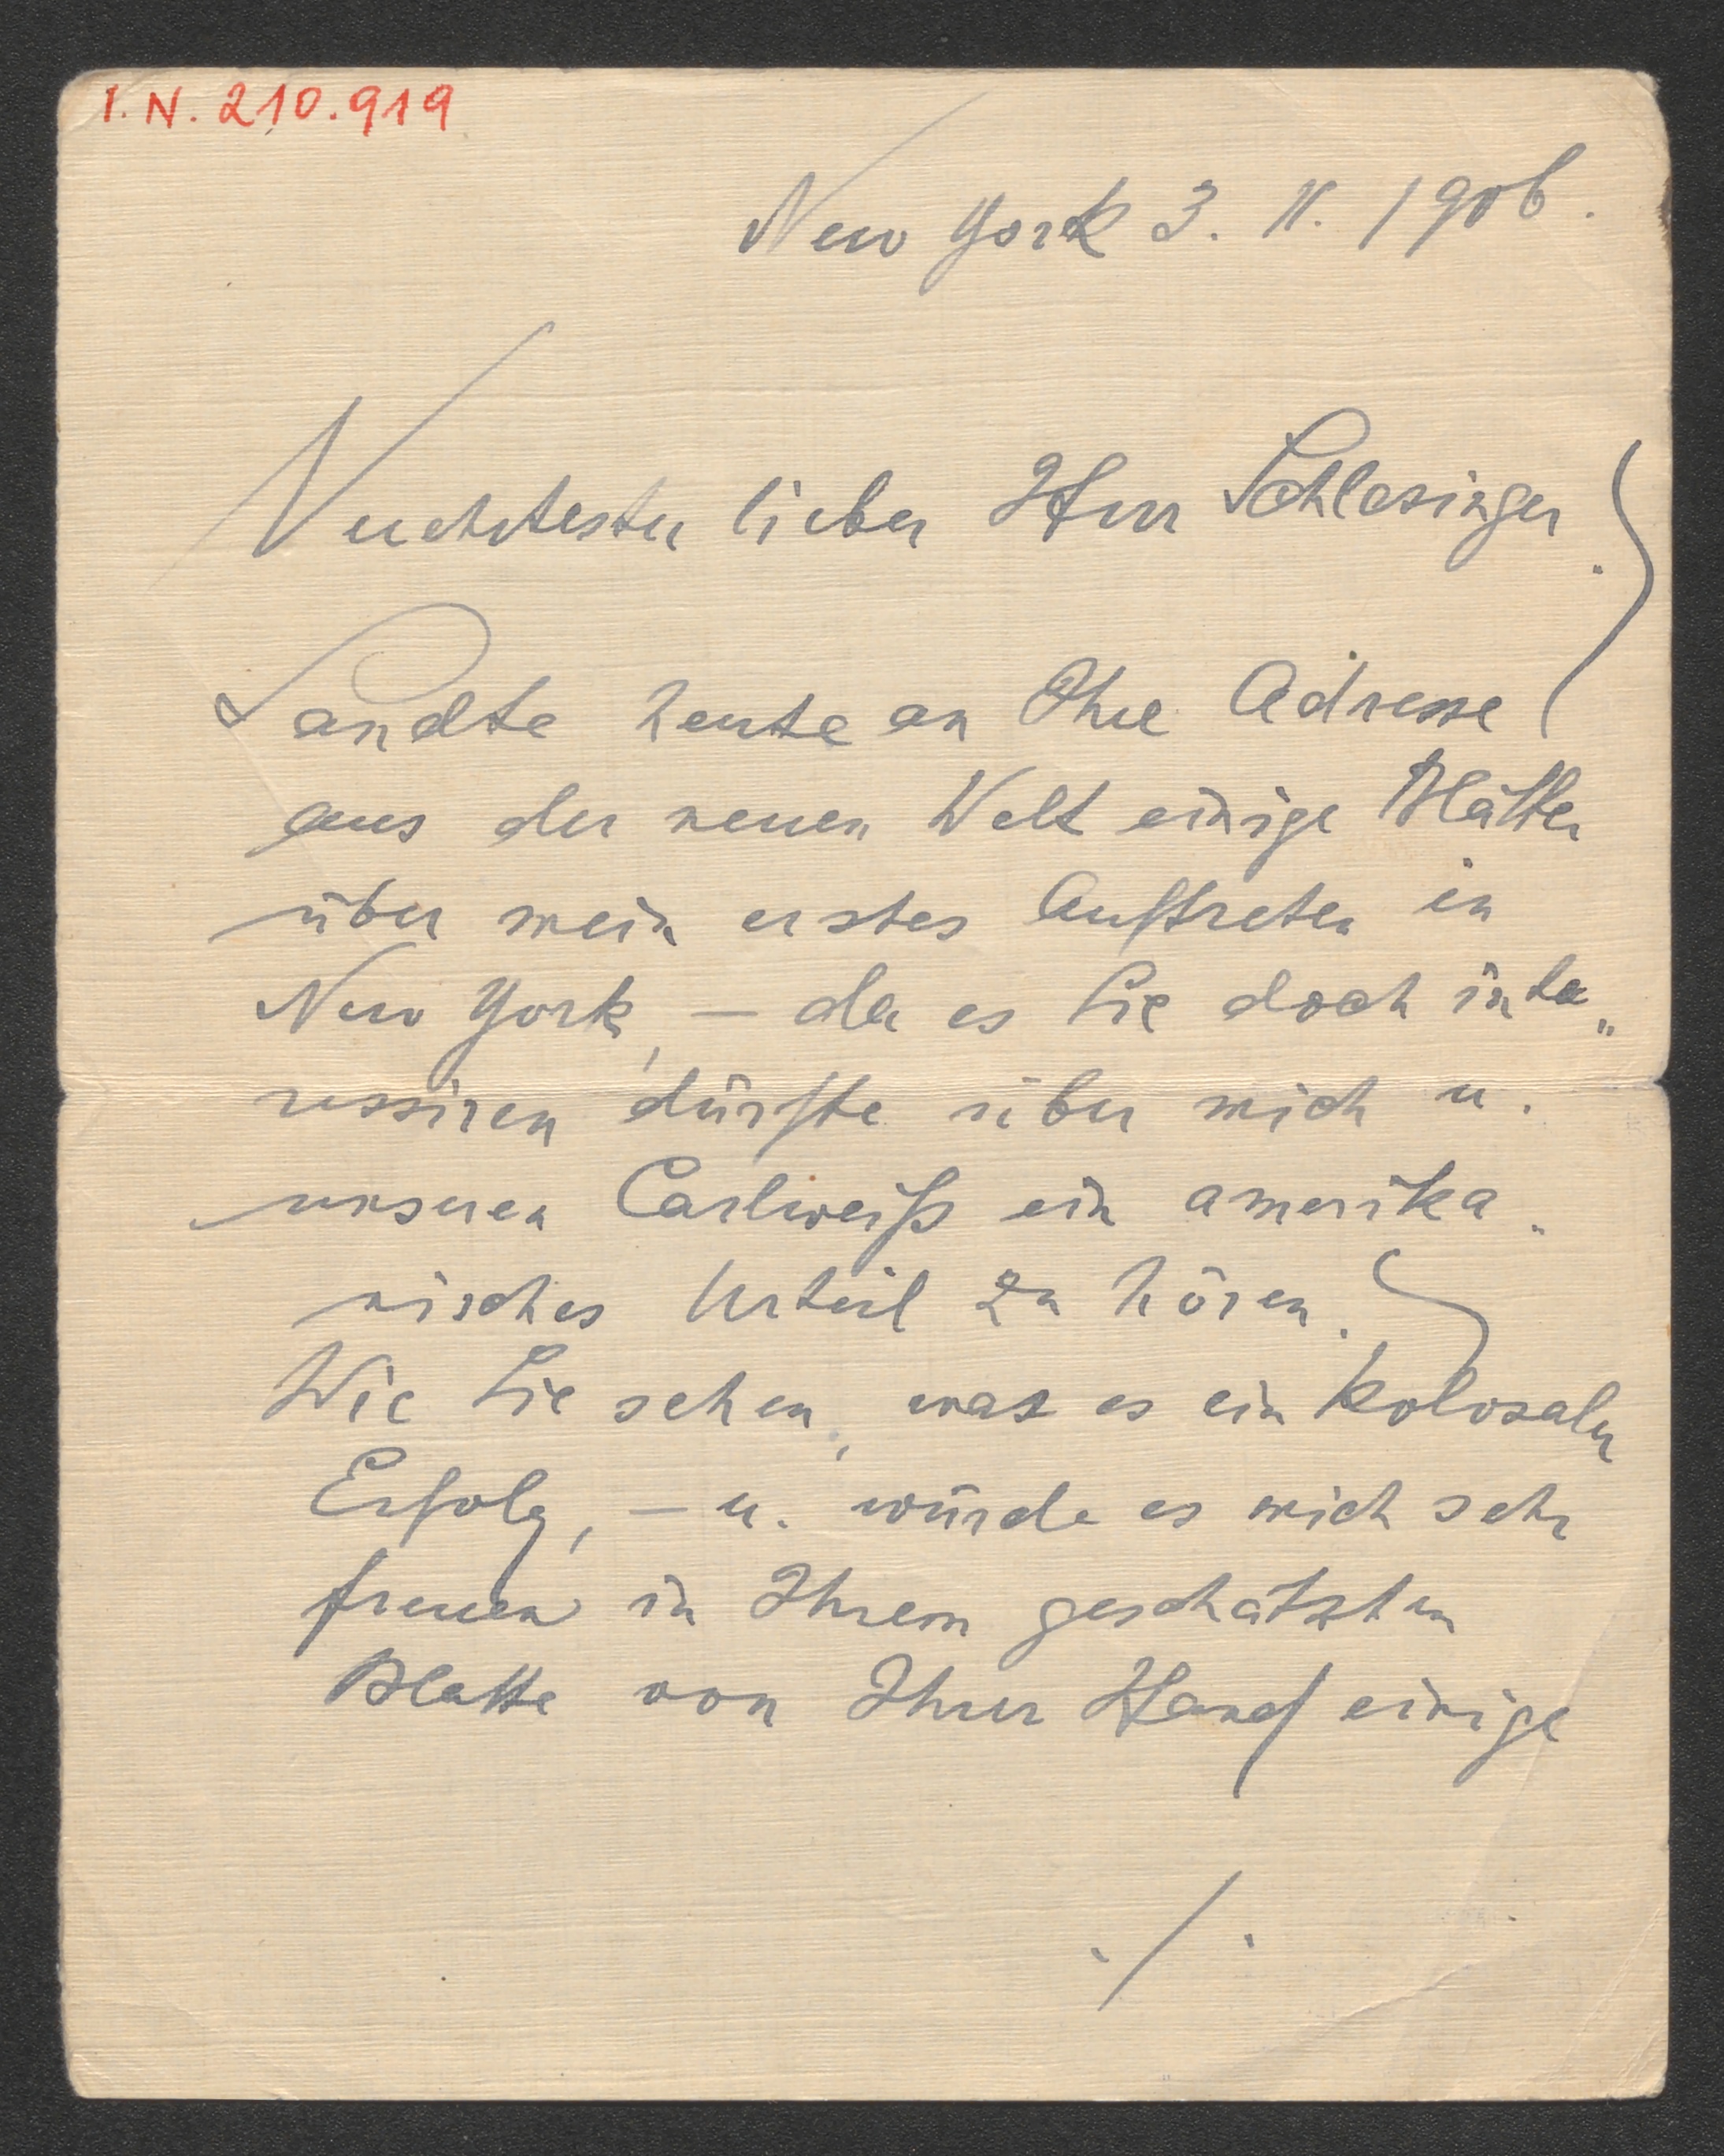 I.N. 210.919
New York 3. II. 1906.
Verehrtester lieber Herr Schlesinger.
Sandte heute an Ihre Adresse
aus der neuen Welt einige Blätter
über mein erstes Auftreten in
New York, – da es Sie doch inte„
ressiren dürfte über mich u.
unseren Carlweiß ein amerika„
nisches Urteil zu hören.
Wie Sie sehen, war es ein kolosaler
Erfolg, – u. würde es mich sehr
freuen in Ihrem geschätzten
Blatte von Ihrer Hand einige
./.